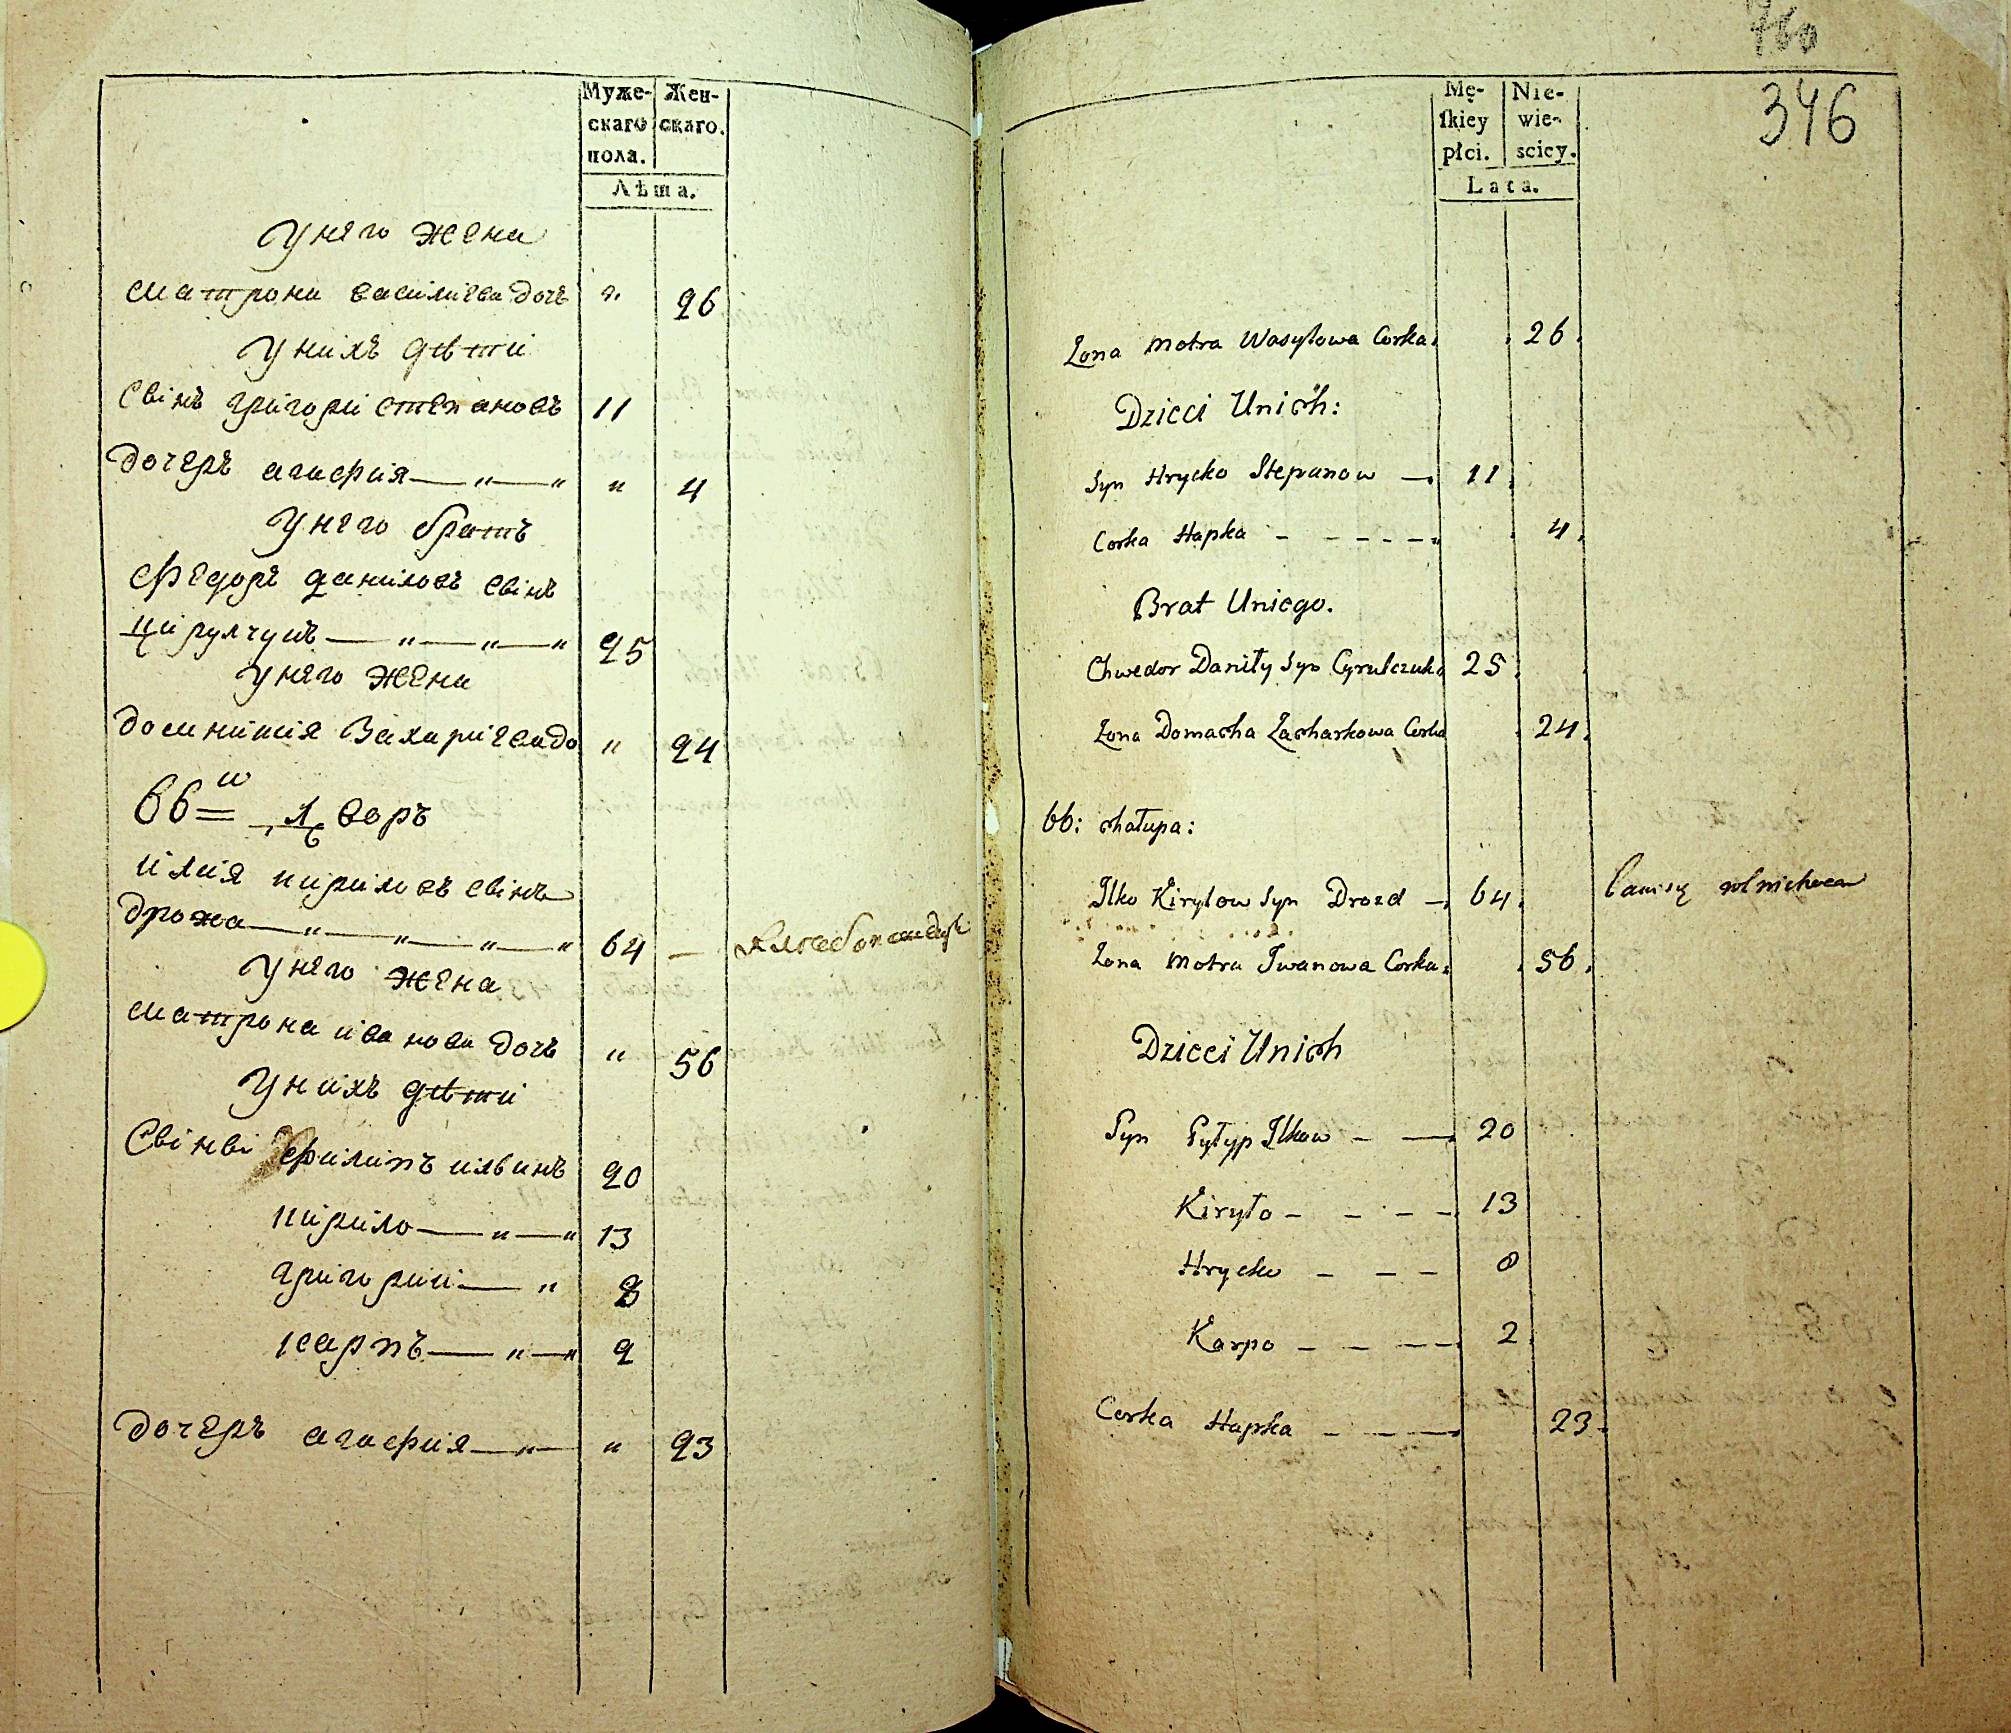 Муже-
скаго
пола.
Жен-
скаго.
Лѣта.
У него жена
Матрона Василиева дочь " 26
У нихъ дѣти
Синъ Григори Степановъ 11
Дочеръ Агафия — " — " " 4
У него братъ
Федоръ Даниловъ синъ
Цирулчукъ — " — " — " 25
У него жена
Домникия Захариева до " 24
66=й дворъ
Илия Кириловъ синъ
Дрозд — " — " — " — " 64 —
У него жена
Матрона Иванова дочь " 56
У нихъ дѣти
Сини Филипъ Ильинъ 20
Кирило — " — " 13
Григории — " 8
Карпъ — " — " 2
Дочеръ Агафия — " — " 23
760
346
Mę-
skiey
płci.
Nie-
wie-
sciey.
Lata.
Zona Motra Wasylowa Corka 26
Dzieci Unich:
Syn Hrycko Stepanow — 11
Corka Hapka - - - - - 4
Brat Uniego.
Chwedor Daniły Syn Cyrulczuk 25
Zona Domacha Zacharkowa Corka 24
66: chałupa:
Ilko Kirylow Syn Drozd — 64
Zona Motra Iwanowa Corka 56
Dzieci Unich
Syn Pyłyp Ilkow - — 20
Kiryło - - - - 13
Hrycko - - - 8
Karpo - - - - 2
Corka Hapka - - - 23